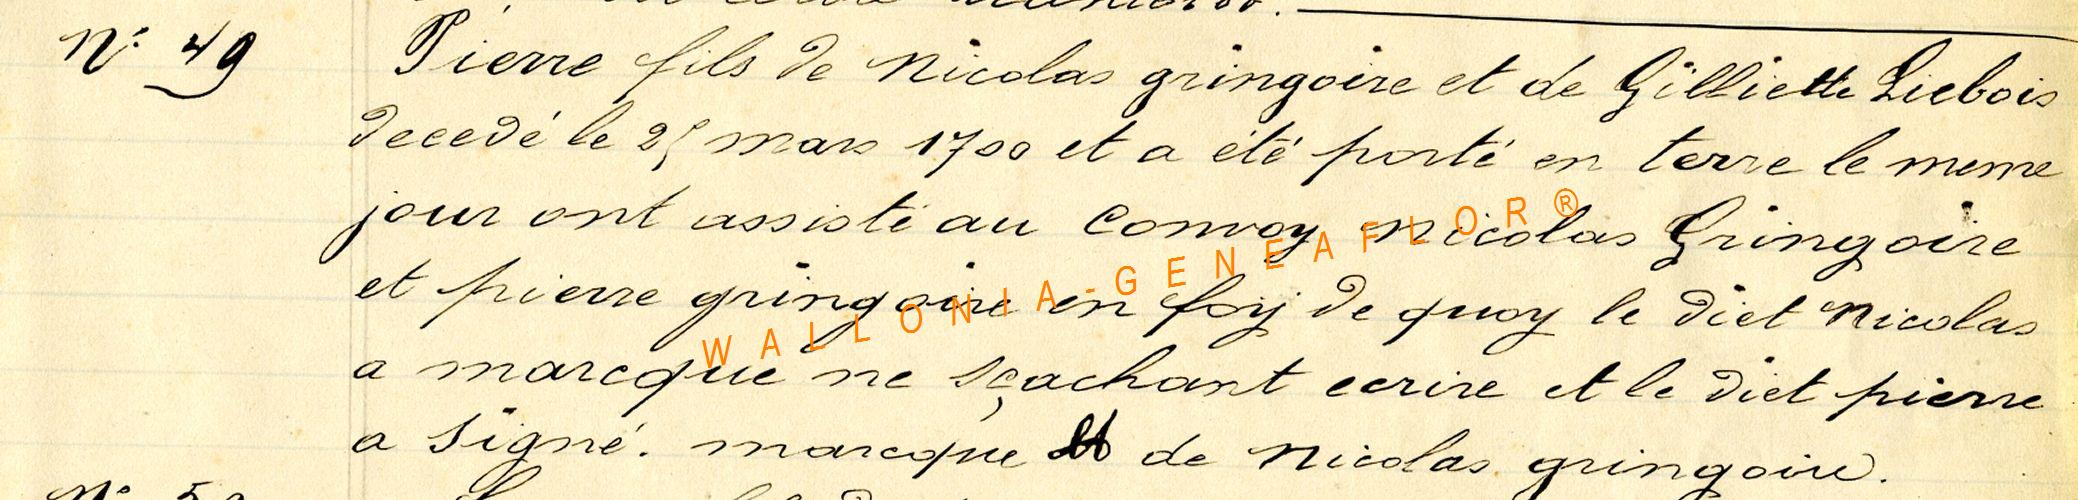 N° 49
Pierre fils de Nicolas gringoire et de Gilliette Liebois
decedé le 25 mars 1700 et a été porté en terre le meme
jour ont assisté au Convoy Nicolas Gringoire
et pierre gringoire en foy de quoy le diet Nicolas
a marcque ne sçachant ecrire et le diet pierre
a signé. marcque de Nicolas gringoire.
WALLONIA-GENEAFLOR®
N°